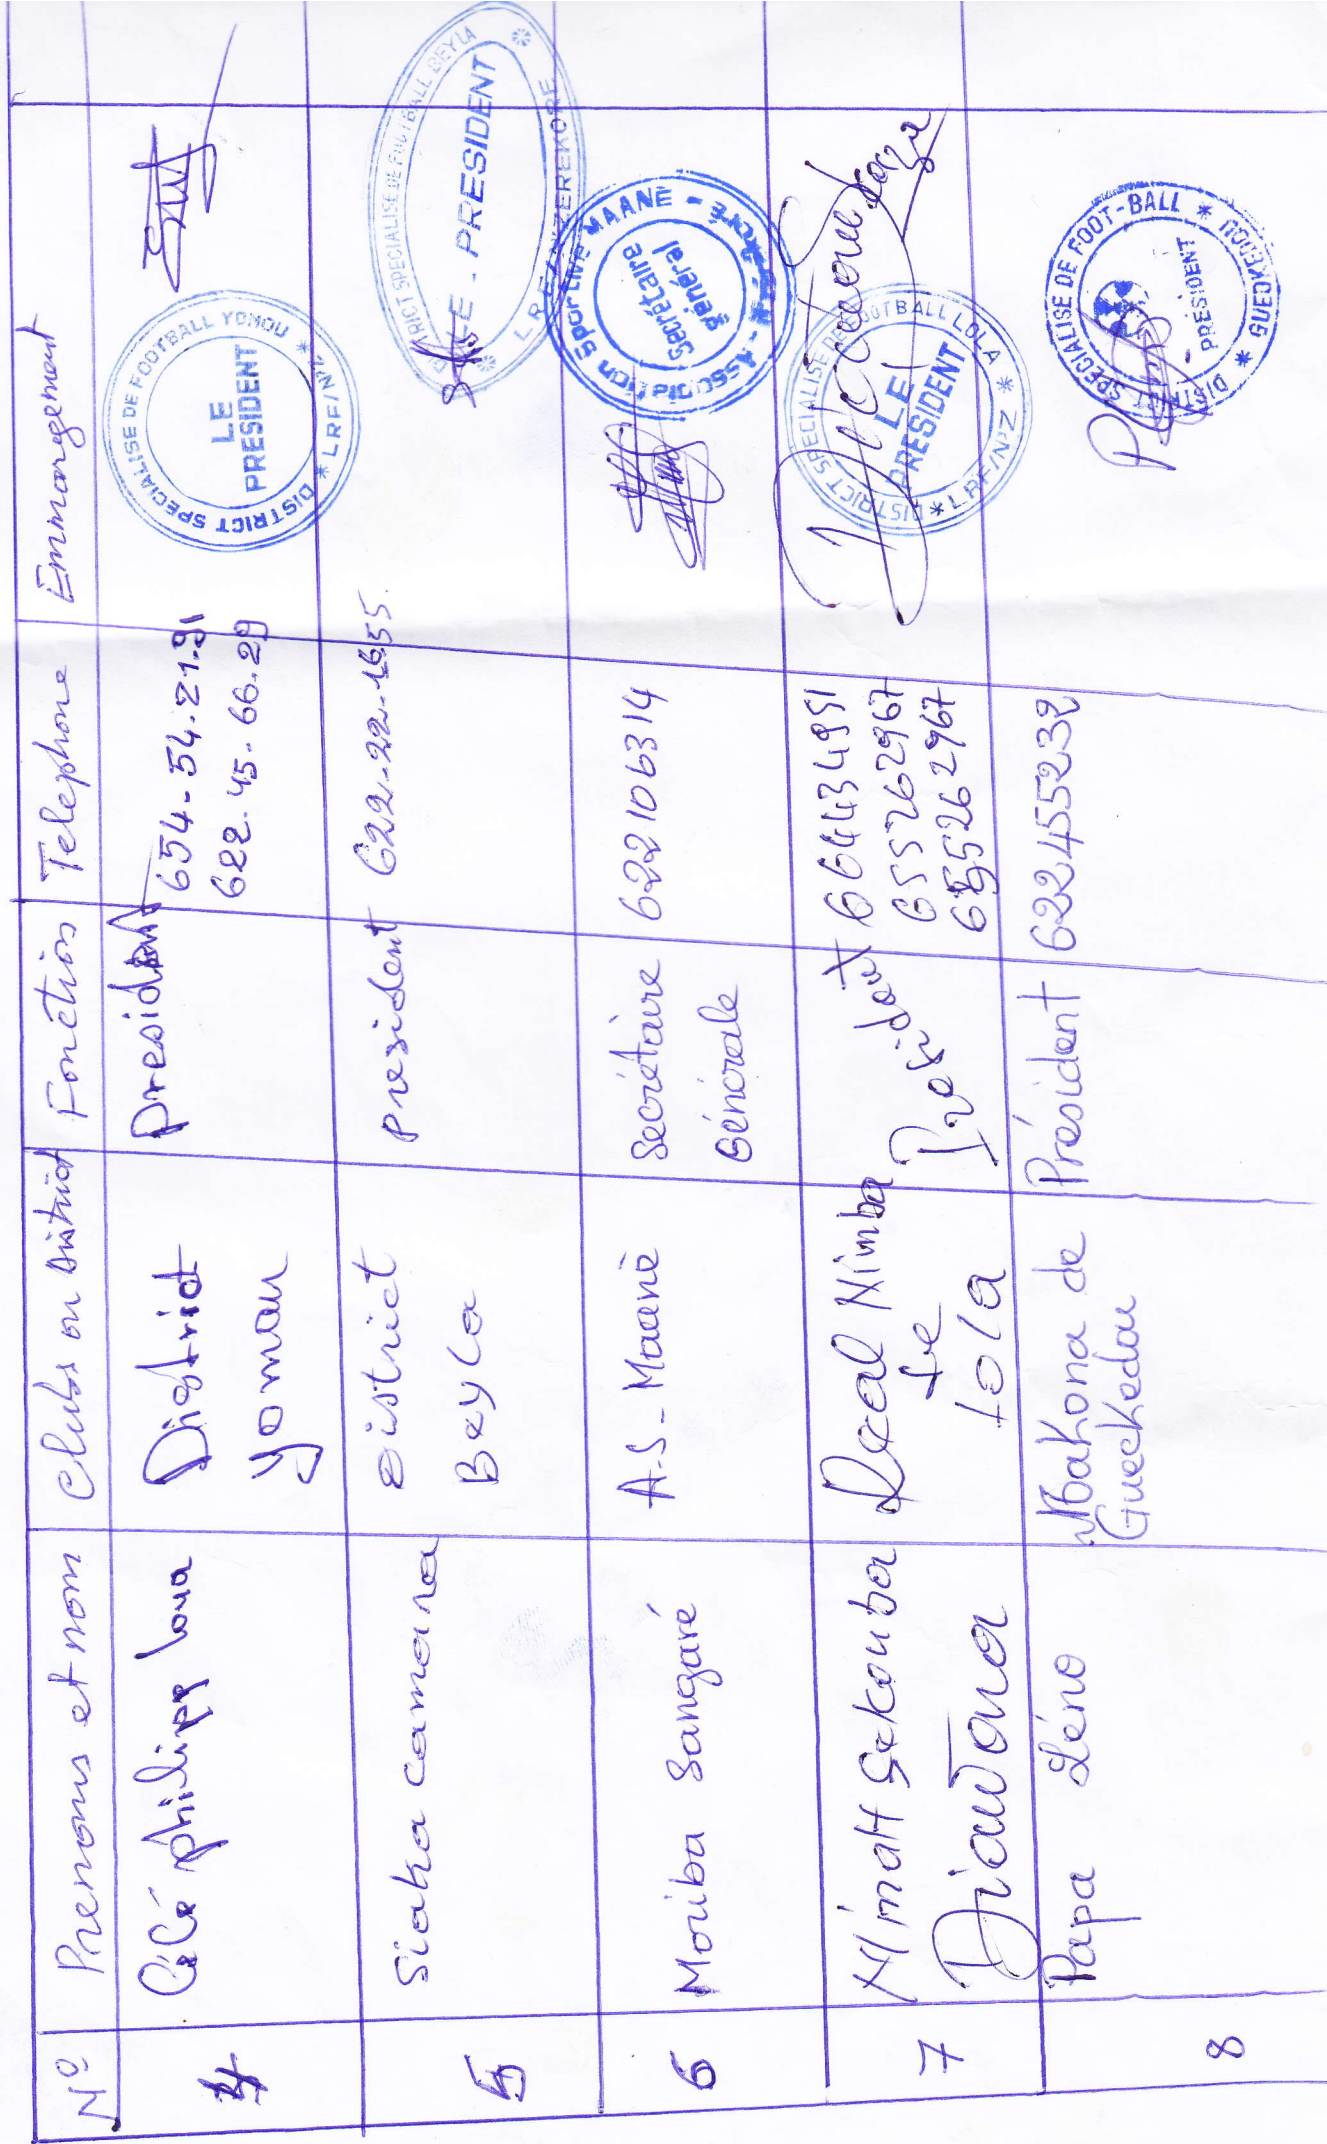 N° Prenoms et nom Clubs ou District Fonction Telephone Emmargement
4 Célé philipp loua District president 654-54-21-91
Yomou 622.45-66.29
DISTRICT SPECIALISE DE FOOTBALL YOMOU * LRF/N'Z *
LE PRESIDENT
5 Siaka camara District president 622-22-1655.
Beyla
DISTRICT SPECIALISE DE FOOTBALL BEYLA * L.R.F/N'ZEREKORE *
LE. PRESIDENT
6 Moriba Sangaré A.S-Maané Secrétaire 622106314
Génerale
Association Sportive MAANE
Secrétaire général
7 N'mah Sekouba Real Nimba President 664434951
Diawara de 655262967
Lola 655262967
DISTRICT SPECIALISE DE FOOTBALL LOLA * LRF/N'Z *
LE PRESIDENT
8 Papa Léno Makona de Président 622455232
Gueckedou
DISTRICT SPECIALISE DE FOOT-BALL * GUECKEDOU *
PRESIDENT